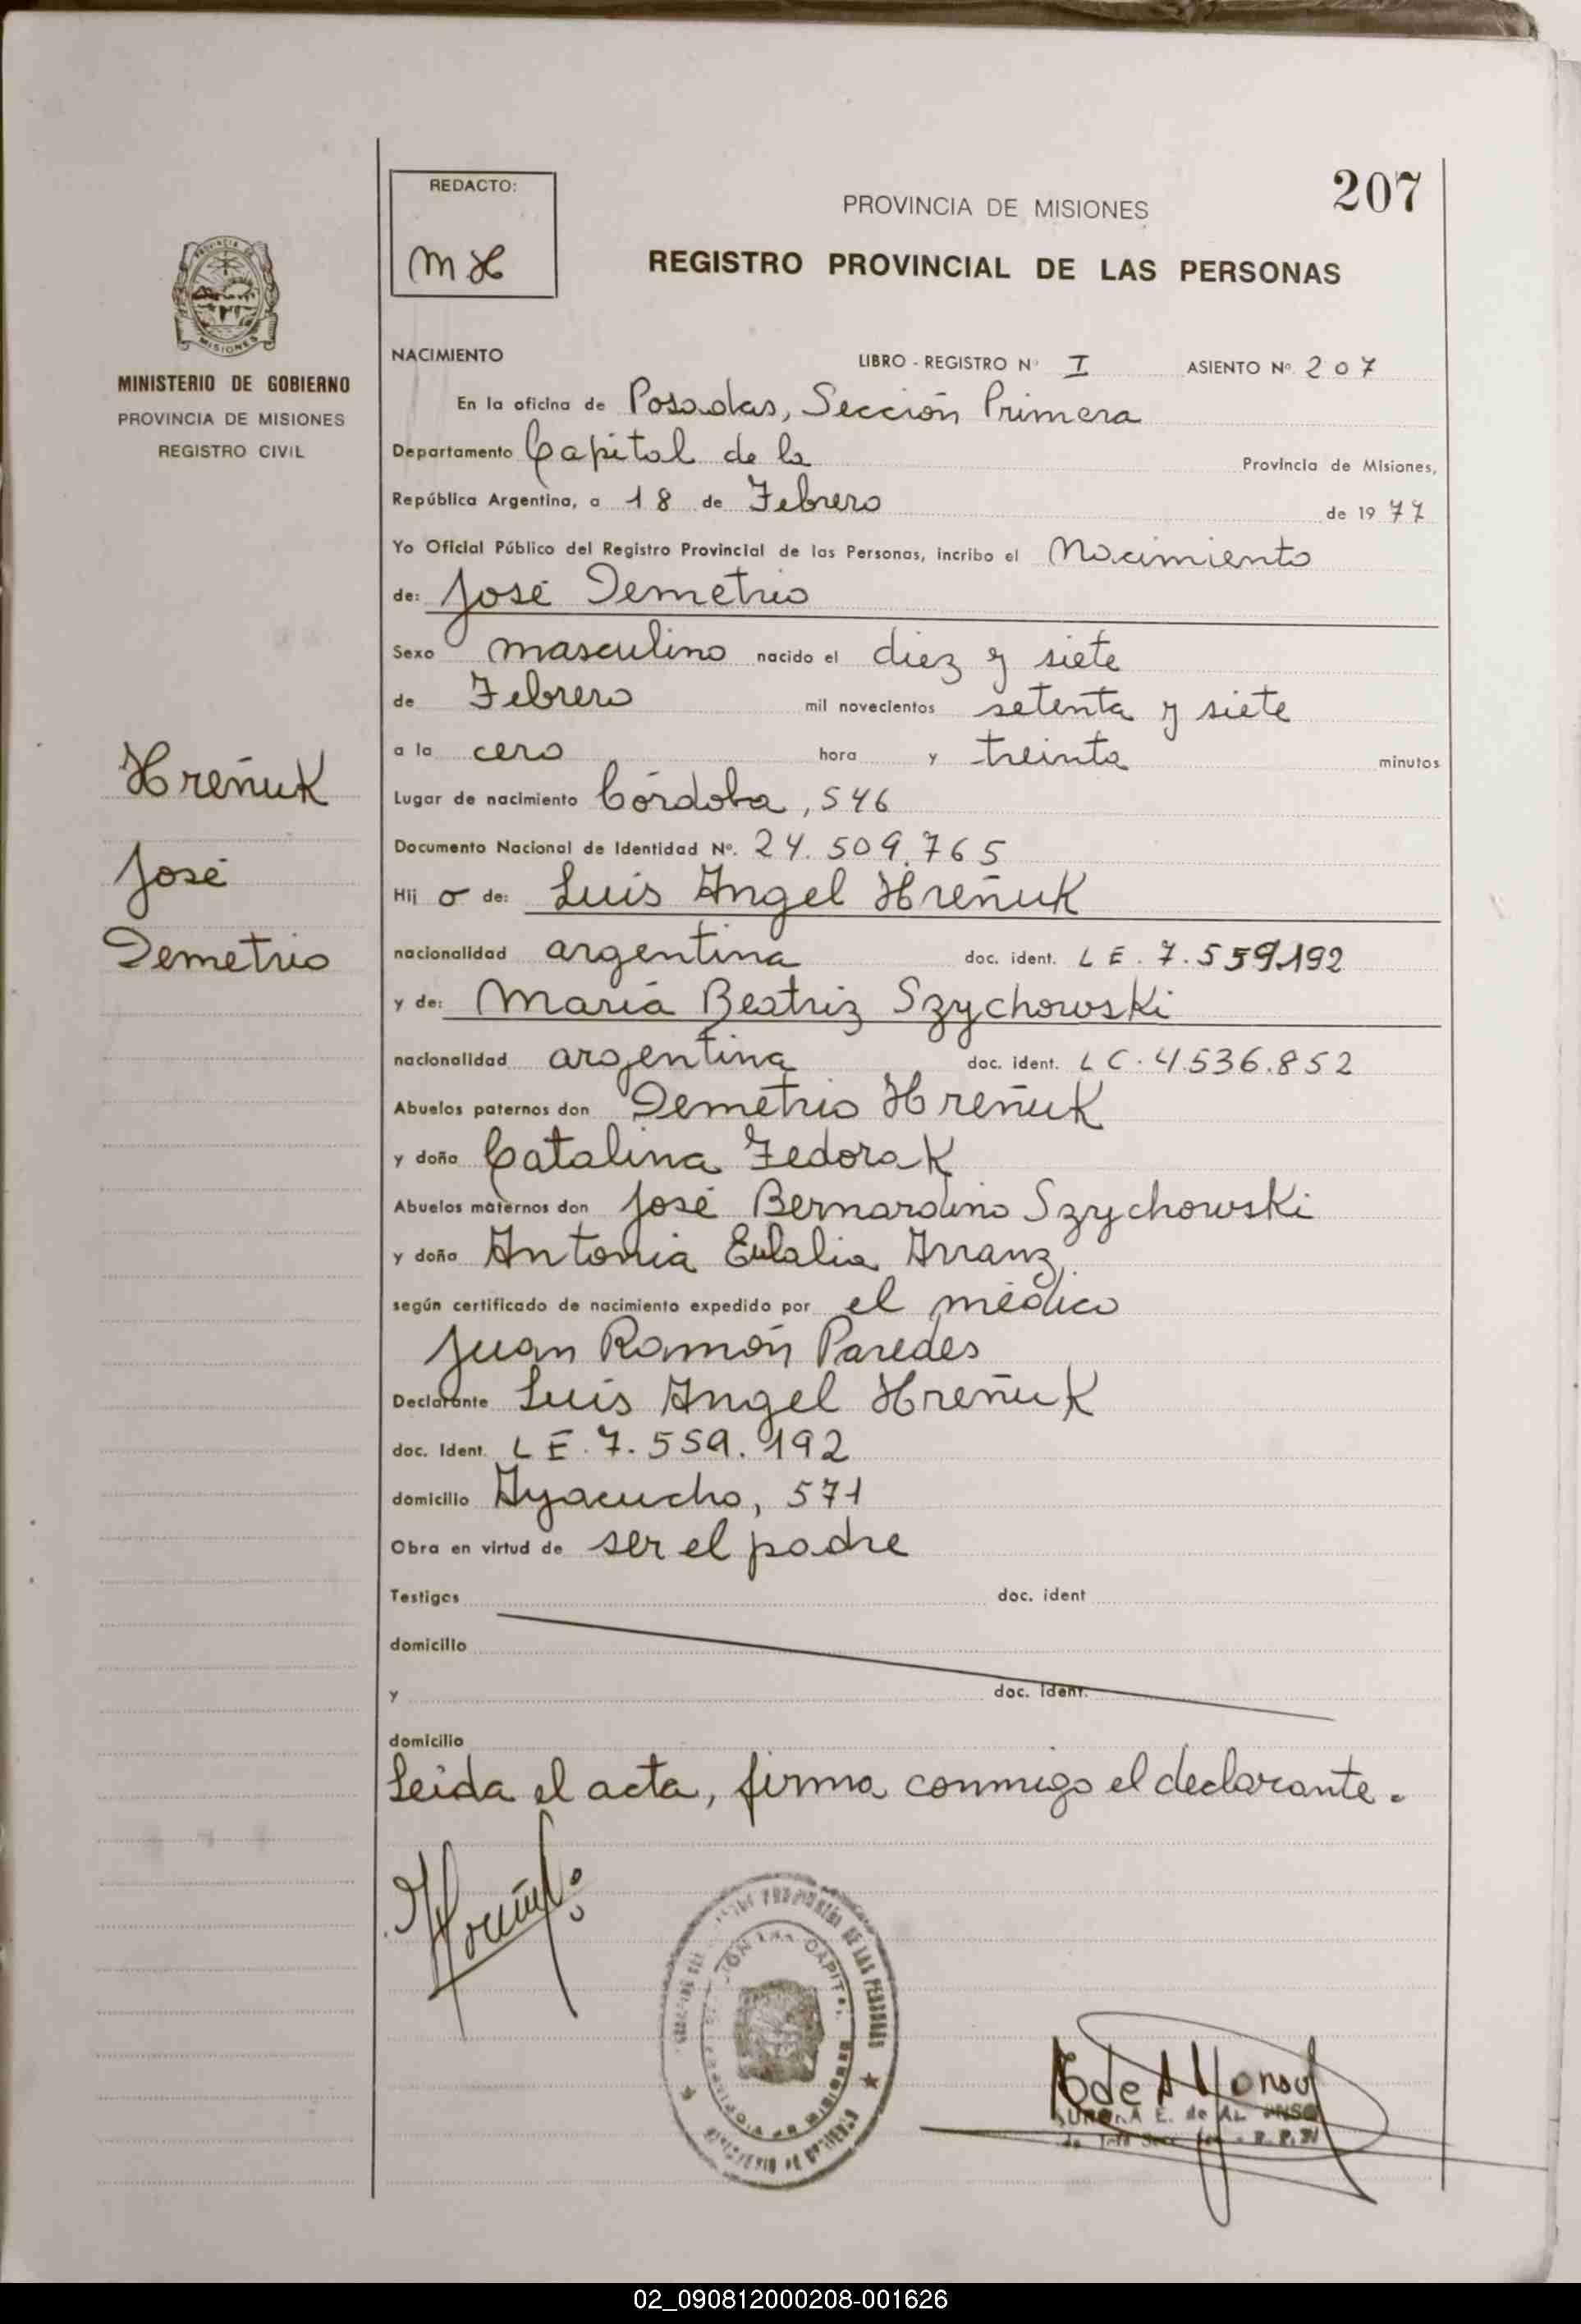 207
REDACTO:
MH
PROVINCIA DE MISIONES
REGISTRO PROVINCIAL DE LAS PERSONAS
MISIONES
MINISTERIO DE GOBIERNO
PROVINCIA DE MISIONES
REGISTRO CIVIL
NACIMIENTO LIBRO - REGISTRO Nº I ASIENTO Nº 207
En la oficina de Posadas, Sección Primera
Departamento Capital de la Provincia de Misiones,
República Argentina, a 18 de Febrero de 1977
Yo Oficial Público del Registro Provincial de las Personas, incribo el Nacimiento
de: José Demetrio
Sexo masculino nacido el diez y siete
de Febrero mil novecientos setenta y siete
a la cero hora y treinta minutos
Hreñuk
José
Demetrio
Lugar de nacimiento Córdoba, 546
Documento Nacional de Identidad Nº. 24.509.765
Hij o de: Luis Angel Hreñuk
nacionalidad argentina doc. ident. LE. 7.559.192
y de: María Beatriz Szychowski
nacionalidad argentina doc. ident. LC. 4.536.852
Abuelos paternos don Demetrio Hreñuk
y doña Catalina Fedorak
Abuelos maternos don José Bernardino Szychowski
y doña Antonia Eulalia Arranz
según certificado de nacimiento expedido por el médico
Juan Ramón Paredes
Declarante Luis Angel Hreñuk
doc. Ident. LE. 7.559.192
domicilio Ayacucho, 571
Obra en virtud de ser el padre
Testigos doc. ident
domicilio
y doc. ident.
domicilio
Leida el acta, firma conmigo el declarante.
Hreñuk
DE LAS PERSONAS
CAPITAL
E. de Alfonso
E. de ALFONSO
02_090812000208-001626